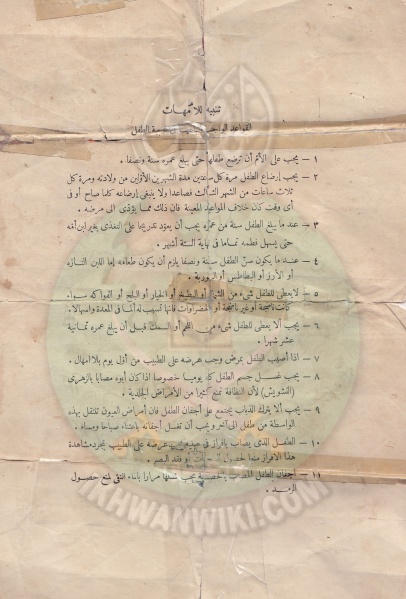 تنبيه للأمهات
القواعد الواجب الطفل
١ — يجب على الأم أن ترضع طفلها حتى يبلغ عمره سنة ونصفا .
٢ — يجب إرضاع الطفل مرة كل ساعتين مدة الشهرين الأولين من ولادته ومرة كل
ثلاث ساعات من الشهر الثالث فصاعدا ولا ينبغى إرضاعه كلما صاح أو فى
أى وقت كان خلاف المواعيد المعينة فان ذلك مما يؤدى الى مرضه .
٣ — عند ما يبلغ الطفل سنة من عمره يجب أن يعود تدريجا على التغذى بغير لبن أمه
حتى يسهل فطمه تماما فى نهاية الستة أشهر .
٤ — عند ما يكون سن الطفل سنة ونصفا يلزم أن يكون طعامه إما اللبن
أو الأرز أو البطاطس أو
٥ — لا يعطى للطفل شىء من أو البطيخ أو الخيار أو البلح أو الفواكه سواء
كانت ناضجة أو غير ناضجة أو الخضراوات فانها تسبب له فى المعدة واسهالا .
٦ — يجب ألا يعطى للطفل شىء من اللحم أو السمك قبل أن يبلغ عمره ثمانية
عشر شهرا .
٧ — اذا أصيب الطفل بمرض وجب عرضه على الطبيب من أول يوم بلا امهال .
٨ — يجب غسل جسم الطفل كله يوميا خصوصا اذا كان أبوه مصابا بالزهرى
(التشويش) لأن النظافة تمنع كثيرا من الأمراض الجلدية .
٩ — يجب ألا يترك الذباب يجتمع على أجفان الطفل فان أمراض العيون تنتقل بهذه
الواسطة من طفل الى آخر ويجب أن تغسل أجفانه باعتناء صباحا ومساء .
١٠ — الطفل الذى يصاب بافراز فى عينيه يجب عرضه على الطبيب بمجرد مشاهدة
هذا الافراز منعا لحصول أو فقد البصر .
١١ — أجفان الطفل المصاب بالحصبة يجب غسلها مرارا بماء نقى لمنع حصول
الرمد .
IKHWANWIKI.COM